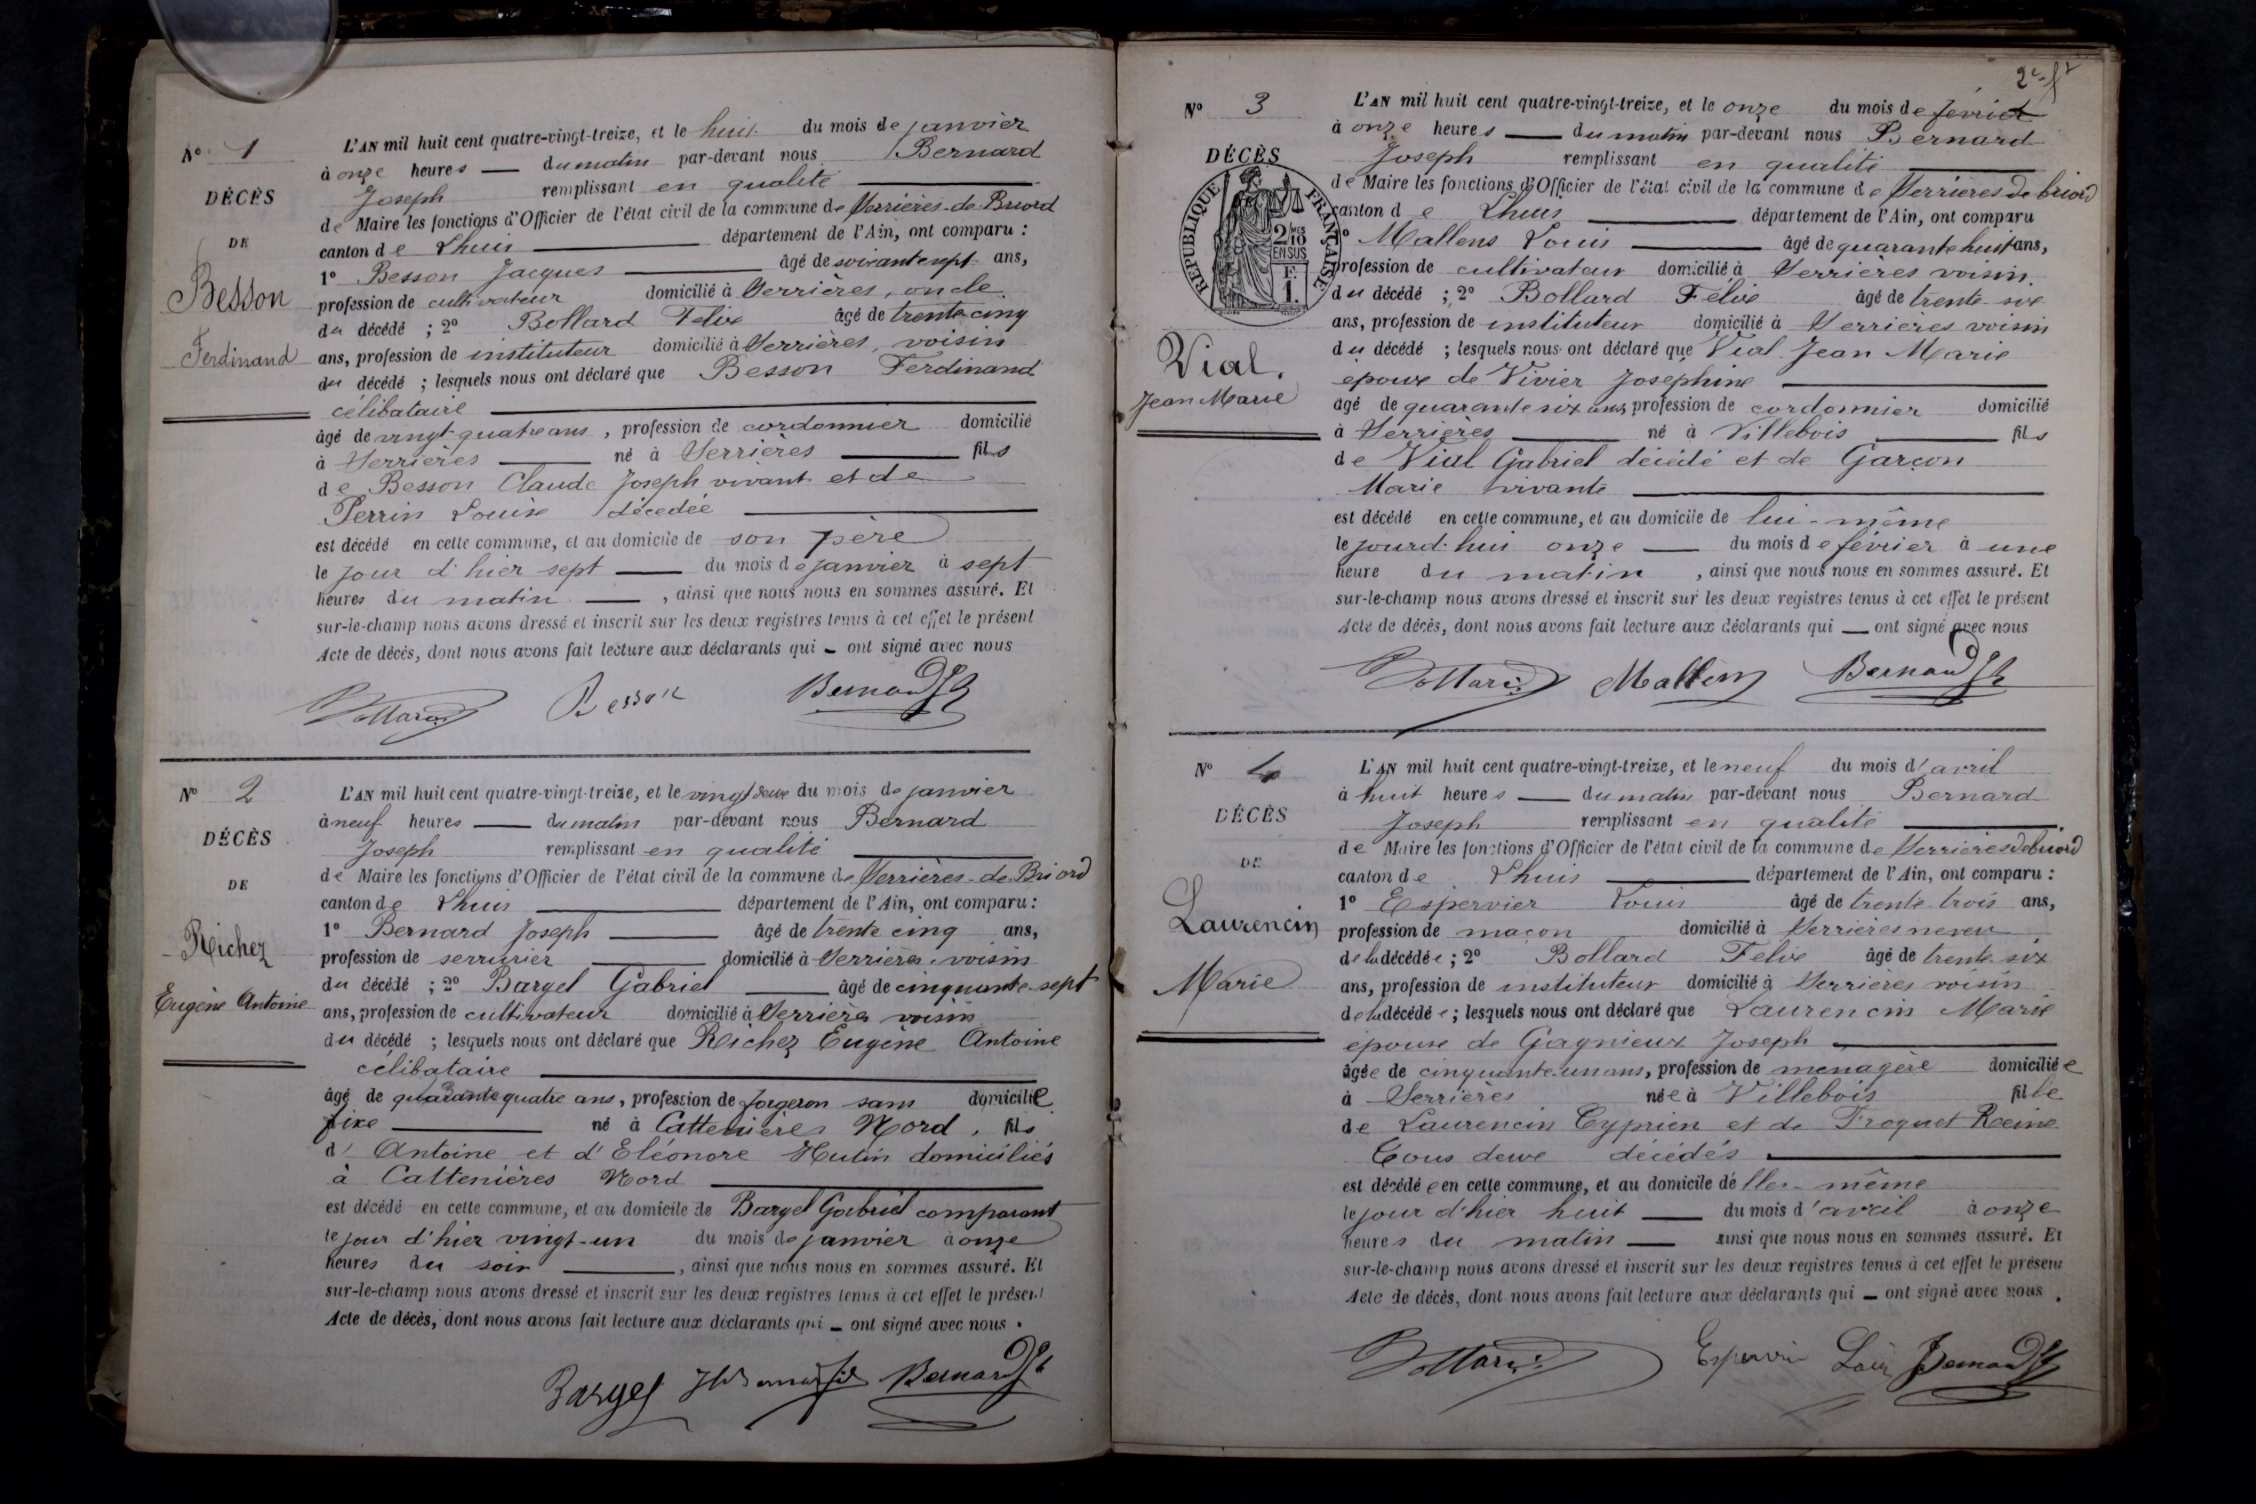 N° 1
DÉCÈS
DE
Besson
Ferdinand
L'AN mil huit cent quatre-vingt-treize, et le huit du mois de janvier
à onze heures du matin par-devant nous Bernard
Joseph remplissant en qualité
de Maire les fonctions d'Officier de l'état civil de la commune de Serrières-de-Briord
canton de Lhuis département de l'Ain, ont comparu :
1° Besson Jacques âgé de soixante sept ans,
profession de cultivateur domicilié à Serrières, oncle
du décédé ; 2° Bollard Félix âgé de trente cinq
ans, profession de instituteur domicilié à Serrières, voisin
du décédé ; lesquels nous ont déclaré que Besson Ferdinand
célibataire
âgé de vingt-quatre ans, profession de cordonnier domicilié
à Serrières né à Serrières fils
de Besson Claude Joseph vivant et de
Perrin Louise décédée
est décédé en cette commune, et au domicile de son père
le jour d'hier sept du mois de janvier à sept
heures du matin, ainsi que nous nous en sommes assuré. Et
sur-le-champ nous avons dressé et inscrit sur les deux registres tenus à cet effet le présent
Acte de décès, dont nous avons fait lecture aux déclarants qui ont signé avec nous
Bollard Besson Bernard
N° 2
DÉCÈS
DE
Richez
Eugène Antoine
L'AN mil huit cent quatre-vingt-treize, et le vingt deux du mois de janvier
à neuf heures du matin par-devant nous Bernard
Joseph remplissant en qualité
de Maire les fonctions d'Officier de l'état civil de la commune de Serrières-de-Briord
canton de Lhuis département de l'Ain, ont comparu :
1° Bernard Joseph âgé de trente cinq ans,
profession de serrurier domicilié à Serrières voisin
du décédé ; 2° Bargel Gabriel âgé de cinquante-sept
ans, profession de cultivateur domicilié à Serrières voisin
du décédé ; lesquels nous ont déclaré que Richez Eugène Antoine
célibataire
âgé de quarante quatre ans, profession de forgeron sans domicilié
fixe né à Cattenières Nord, fils
d' Antoine et d'Eléonore Hutin domiciliés
à Cattenières Nord
est décédé en cette commune, et au domicile de Bargel Gabriel comparant
le jour d'hier vingt-un du mois de janvier à onze
heures du soir, ainsi que nous nous en sommes assuré. Et
sur-le-champ nous avons dressé et inscrit sur les deux registres tenus à cet effet le présent
Acte de décès, dont nous avons fait lecture aux déclarants qui ont signé avec nous.
Bargel Bernard
N° 3
DÉCÈS
RÉPUBLIQUE FRANÇAISE
2/10 EN SUS
F. 1.
Vial.
Jean Marie
L'AN mil huit cent quatre-vingt-treize, et le onze du mois de février
à onze heures du matin par-devant nous Bernard
Joseph remplissant en qualité
de Maire les fonctions d'Officier de l'état civil de la commune de Serrières de briord
canton de Lhuis département de l'Ain, ont comparu
Mallens Louis âgé de quarante huit ans,
profession de cultivateur domicilié à Serrières voisin
du décédé ; 2° Bollard Félix âgé de trente-six
ans, profession de instituteur domicilié à Serrières voisin
du décédé ; lesquels nous ont déclaré que Vial Jean Marie
époux de Vivier Joséphine
âgé de quarante six ans, profession de cordonnier domicilié
à Serrières né à Villebois fils
de Vial Gabriel décédé et de Garçon
Marie vivante
est décédé en cette commune, et au domicile de lui-même
le jourd'hui onze du mois de février à une
heure du matin, ainsi que nous nous en sommes assuré. Et
sur-le-champ nous avons dressé et inscrit sur les deux registres tenus à cet effet le présent
Acte de décès, dont nous avons fait lecture aux déclarants qui ont signé avec nous
Bollard Mallens Bernard
N° 4
DÉCÈS
DE
Laurencin
Marie
L'AN mil huit cent quatre-vingt-treize, et le neuf du mois d'avril
à huit heures du matin par-devant nous Bernard
Joseph remplissant en qualité
de Maire les fonctions d'Officier de l'état civil de la commune de Serrières de briord
canton de Lhuis département de l'Ain, ont comparu :
1° Espervier Louis âgé de trente trois ans,
profession de maçon domicilié à Serrières neveu
de la décédée ; 2° Bollard Félix âgé de trente-six
ans, profession de instituteur domicilié à Serrières voisin
de la décédée ; lesquels nous ont déclaré que Laurencin Marie
épouse de Gagnieux Joseph
âgée de cinquante-un ans, profession de ménagère domiciliée
à Serrières née à Villebois fille
de Laurencin Cyprien et de Froquet Reine
Tous deux décédés
est décédée en cette commune, et au domicile d'elle-même
le jour d'hier huit du mois d'avril à onze
heures du matin ainsi que nous nous en sommes assuré. Et
sur-le-champ nous avons dressé et inscrit sur les deux registres tenus à cet effet le présent
Acte de décès, dont nous avons fait lecture aux déclarants qui ont signé avec nous.
Bollard Espervier Louis Bernard